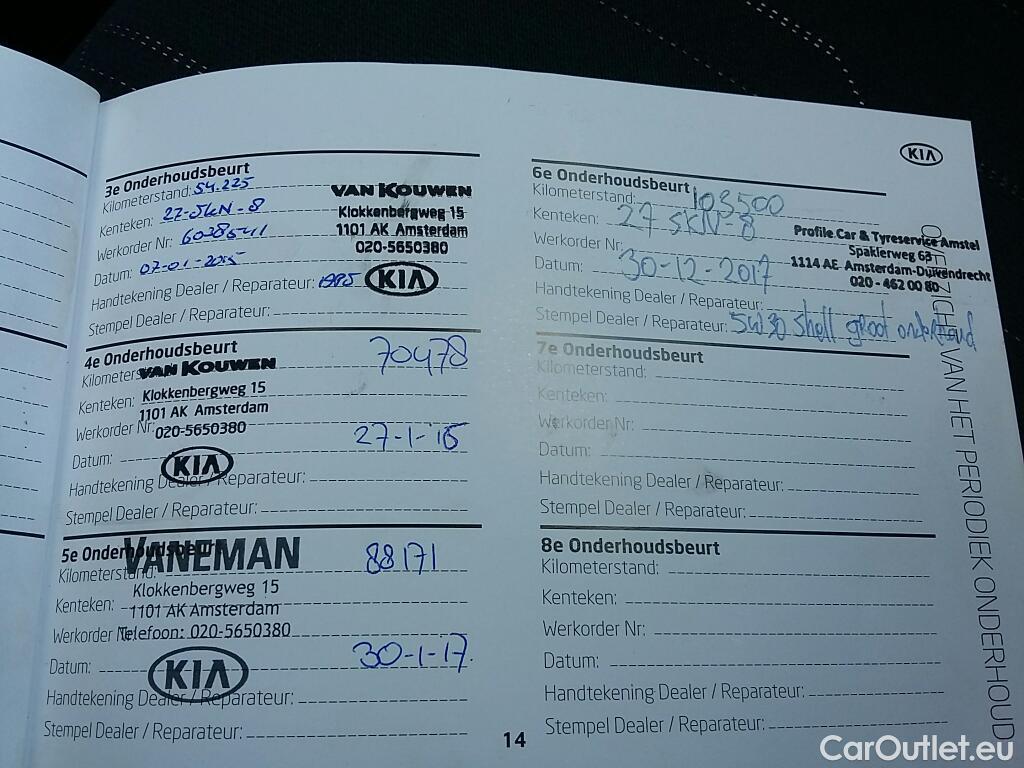 3e Onderhoudsbeurt
Kilometerstand: 54.225
Kenteken: 27-SKN-8
Werkorder Nr: 6028541
Datum: 07-01-2015
Handtekening Dealer / Reparateur:
Stempel Dealer / Reparateur:
VAN KOUWEN
Klokkenbergweg 15
1101 AK Amsterdam
020-5650380
KIA
4e Onderhoudsbeurt
Kilometers 70478
VAN KOUWEN
Kenteken: Klokkenbergweg 15
1101 AK Amsterdam
Werkorder Nr: 020-5650380
Datum: 27-1-16
KIA
Handtekening Dealer / Reparateur:
Stempel Dealer / Reparateur:
5e Onderhoudsbeurt
VANEMAN
Kilometerstand: 88171
Klokkenbergweg 15
Kenteken: 1101 AK Amsterdam
Werkorder Nr Telefoon: 020-5650380
Datum: 30-1-17
KIA
Handtekening Dealer / Reparateur:
Stempel Dealer / Reparateur:
KIA
6e Onderhoudsbeurt
Kilometerstand: 103500
Kenteken: 27 SKN-8
Werkorder Nr:
Datum: 30-12-2017
Handtekening Dealer / Reparateur:
Stempel Dealer / Reparateur: 5W30 Shell groot onderhoud
Profile Car & Tyreservice Amstel
Spaklerweg 63
1114 AE Amsterdam-Duivendrecht
020 - 462 00 80
7e Onderhoudsbeurt
Kilometerstand:
Kenteken:
Werkorder Nr:
Datum:
Handtekening Dealer / Reparateur:
Stempel Dealer / Reparateur:
8e Onderhoudsbeurt
Kilometerstand:
Kenteken:
Werkorder Nr:
Datum:
Handtekening Dealer / Reparateur:
Stempel Dealer / Reparateur:
OVERZICHT VAN HET PERIODIEK ONDERHOUD
14
CarOutlet.eu